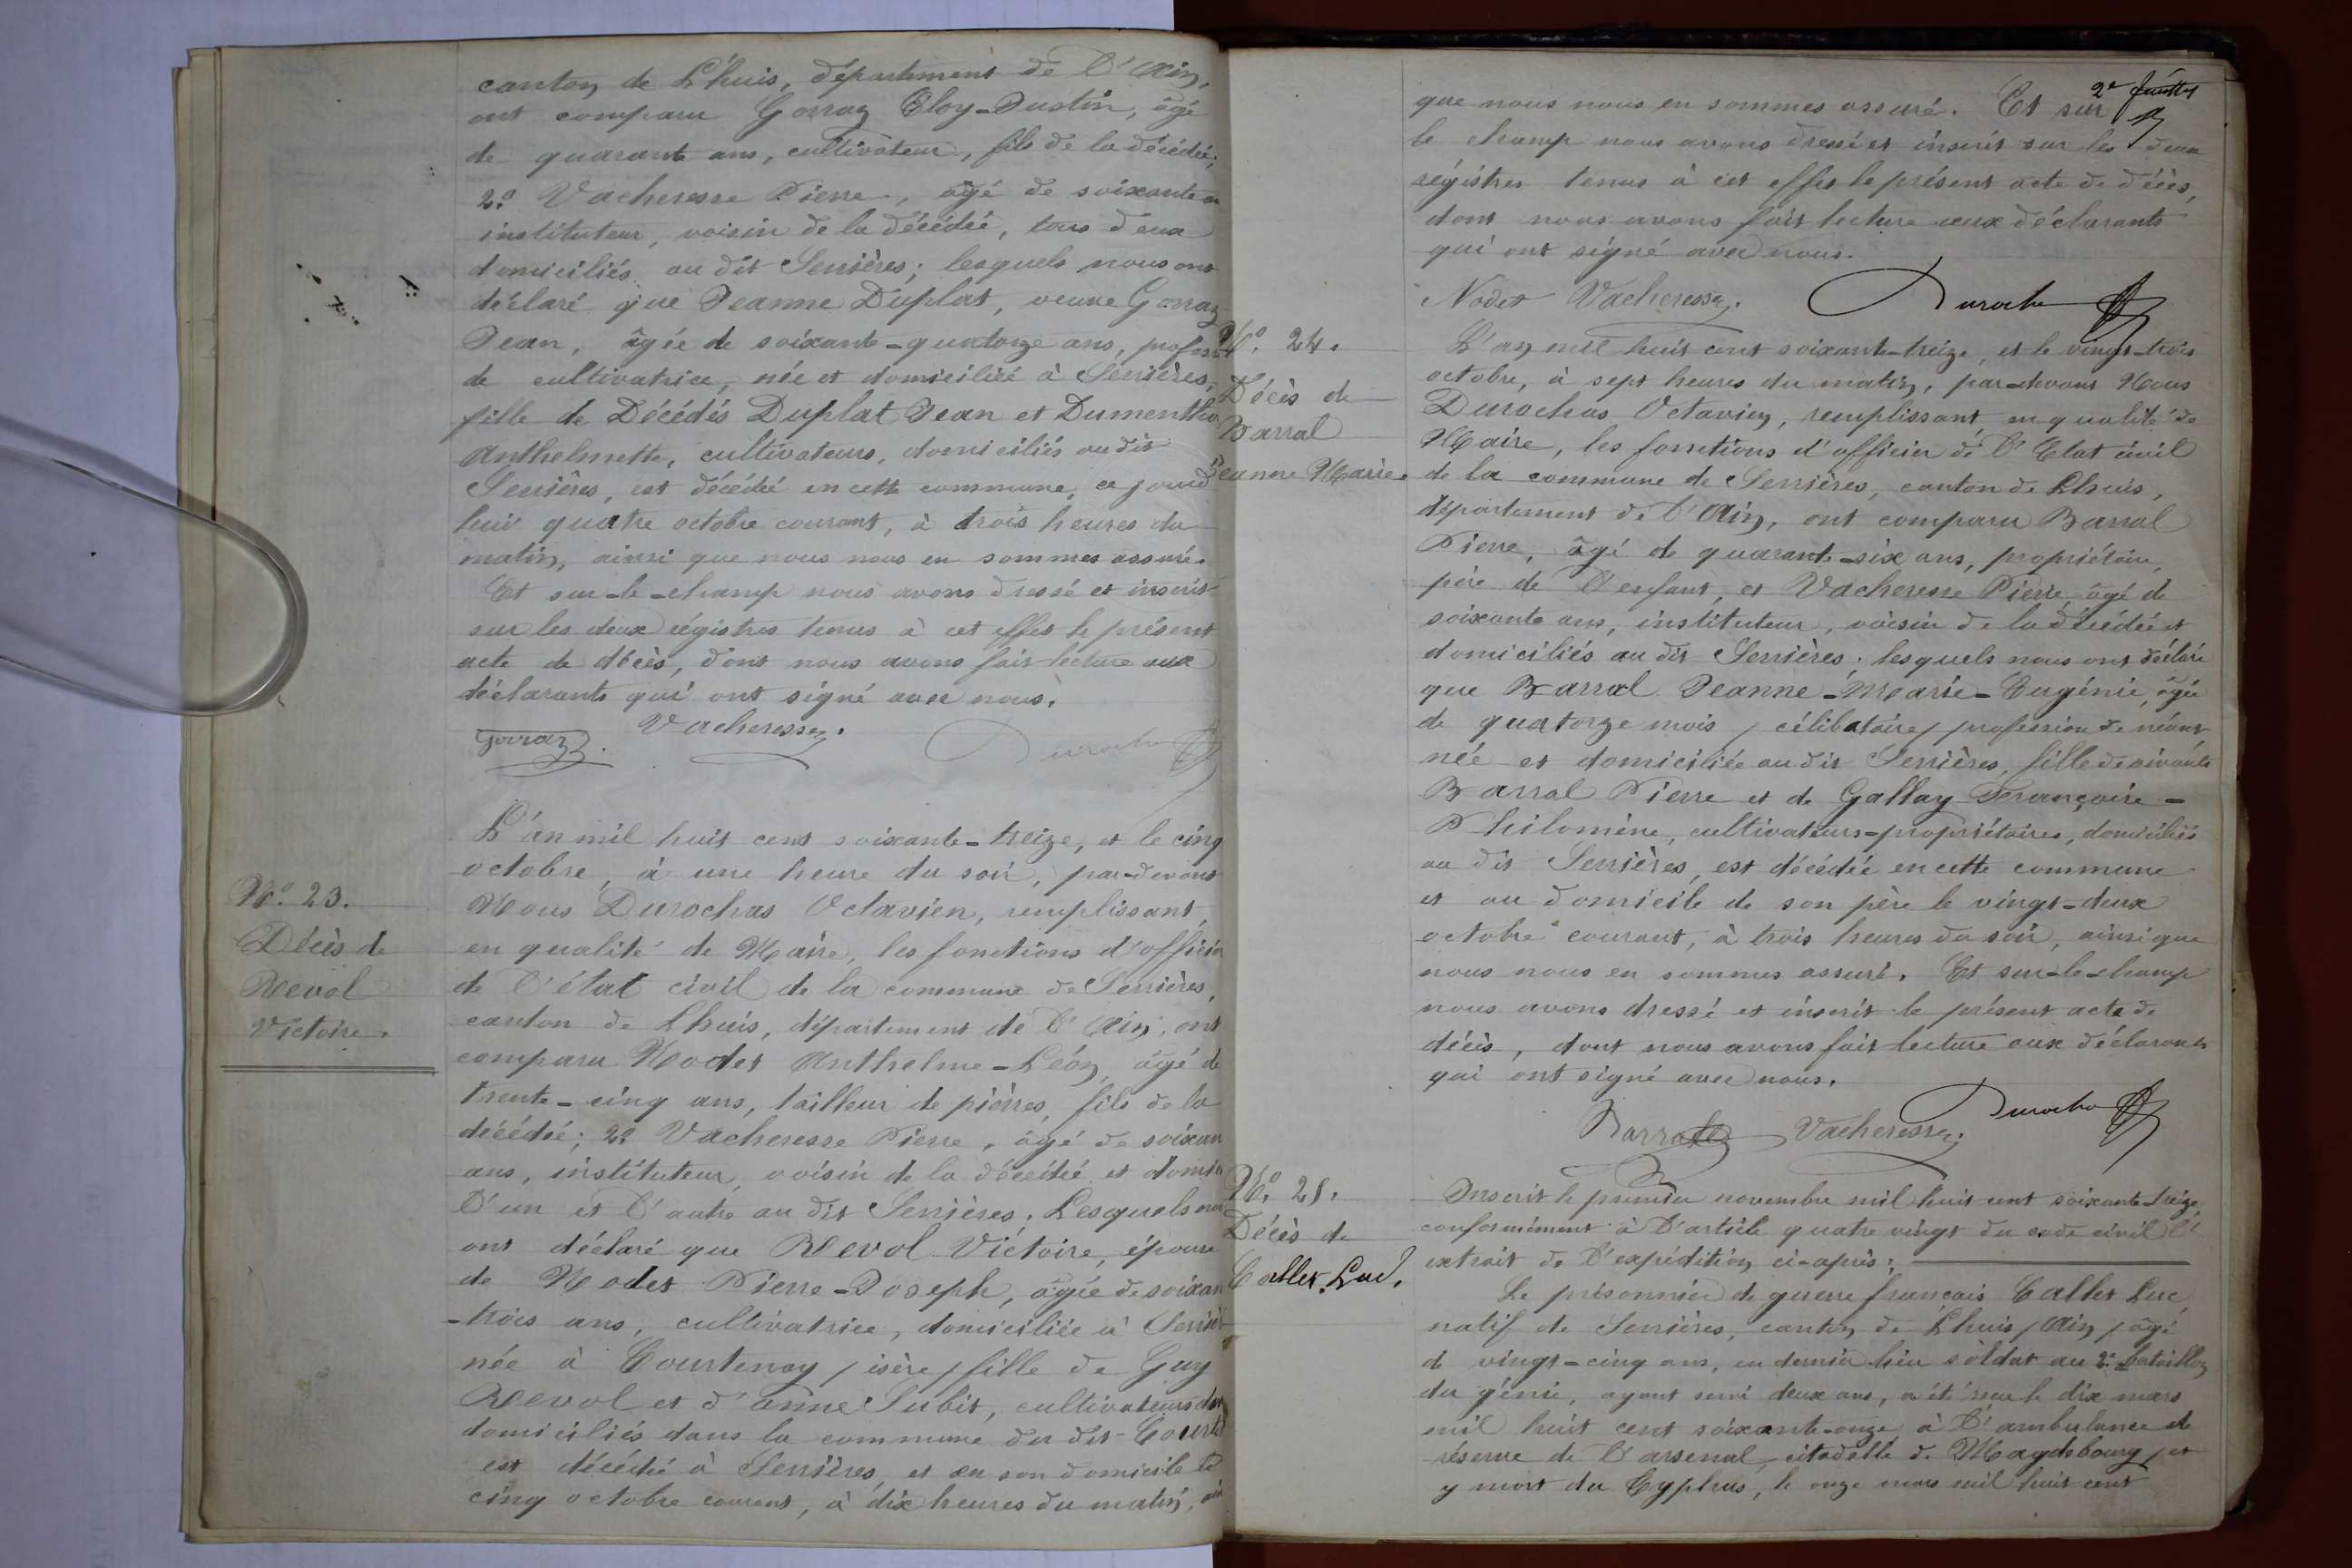 canton de Lhuis, département de l'Ain,
ont comparu Gorraz Eloy-Justin, âgé
de quarante ans, cultivateur, fils de la décédée;
2º Vacheresse Pierre, âgé de soixante
instituteur, voisin de la décédée, tous deux
domiciliés au dit Serrières; lesquels nous ont
déclaré que Jeanne Duplat, veuve Gorraz
Jean, âgée de soixante-quatorze ans,
de cultivatrice, née et domiciliée à Serrières,
fille de Décédés Duplat Jean et Dumentho
Anthelmette, cultivateurs, domiciliés au dit
Serrières, est décédée en cette commune, ce jourd
hui quatre octobre courant, à trois heures du
matin, ainsi que nous nous en sommes assuré.
Et sur-le-champ nous avons dressé et inscrit
sur les deux régistres tenus à cet effet le présent
acte de décès, dont nous avons fait lecture aux
déclarants qui ont signé avec nous.
Gorraz. Vacheresse. Durochas
Nº. 23.
Décès de
Revol
Victoire.
L'an mil huit cent soixante-treize, et le cinq
octobre, à une heure du soir, par-devant
Nous Durochas Octavien, remplissant,
en qualité de Maire, les fonctions d'officier
de l'état civil de la commune de Serrières,
canton de Lhuis, département de l'Ain, ont
comparu Nodet Anthelme-Léon, âgé de
trente-cinq ans, tailleur de pierres, fils de la
décédée; 2º Vacheresse Pierre, âgé de soixan
ans, instituteur, voisin de la décédée et domici
l'un et l'autre au dit Serrières. Lesquels nous
ont déclaré que Revol Victoire, épouse
de Nodet Pierre-Joseph, âgée de soixan
-trois ans, cultivatrice, domiciliée à Serrièr
née à Courtenay / isère / fille de Guy
Revol et d'anne Subit, cultivateurs
domiciliés dans la commune du dit Courte
est décédée à Serrières, et en son domicile le
cinq octobre courant, à dix heures du matin,
2e feuillet
que nous nous en sommes assuré. Et sur
le champ nous avons dressé et inscrit sur les deux
régistres tenus à cet effet le présent acte de décès,
dont nous avons fait lecture aux déclarants
qui ont signé avec nous.
Nodet Vacheresse. Durochas
Nº. 24.
Décès de
Barral
Jeanne Marie
L'an mil huit cent soixante-treize, et le vingt-trois
octobre, à sept heures du matin, par-devant Nous
Durochas Octavien, remplissant, en qualité de
Maire, les fonctions d'officier de l'Etat civil
de la commune de Serrières, canton de Lhuis,
département de l'Ain, ont comparu Barral
Pierre, âgé de quarante-six ans, propriétaire,
père de l'enfant, et Vacheresse Pierre, âgé de
soixante ans, instituteur, voisin de la décédée et
domiciliés au dit Serrières; lesquels nous ont déclaré
que Barral Jeanne-Marie-Eugénie, âgée
de quatorze mois / célibataire / profession de néant,
née et domiciliée au dit Serrières, fille de vivants
Barral Pierre et de Gallay Françoise-
Philomène, cultivateurs-propriétaires, domiciliés
au dit Serrières, est décédée en cette commune
et au domicile de son père le vingt-deux
octobre courant, à trois heures du soir, ainsi que
nous nous en sommes assuré. Et sur-le-champ
nous avons dressé et inscrit le présent acte de
décès, dont nous avons fait lecture aux déclarants
qui ont signé avec nous.
Barral Vacheresse. Durochas
Nº. 25.
Décès de
Callet Luc.
Inscrit le premier novembre mil huit cent soixante-treize,
conformément à l'article quatre vingt du code civil l'
extrait de l'expédition ci-après:
Le prisonnier de guerre français Callet Luc
natif de Serrières, canton de Lhuis / Ain / âgé
de vingt-cinq ans, en dernier lieu soldat au 2e bataillon
du génie, ayant servi deux ans, a été reçu le dix mars
mil huit cent soixante-onze à l'ambulance de
réserve de l'arsenal, citadelle de Magdebourg, et
y mort du Typhus, le onze mars mil huit cent